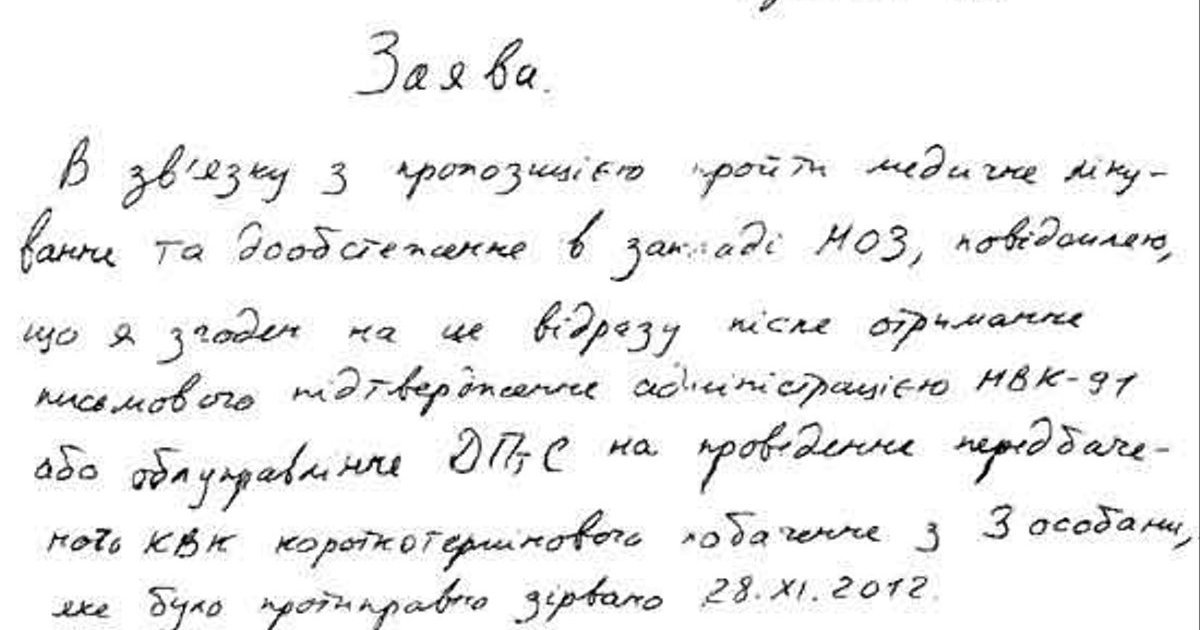 Заява.
В зв'язку з пропозицією пройти медичне ліку-
вання та дообстеження в закладі МОЗ, повідомляю,
що я згоден на це відразу після отримання
письмового підтвердження адміністрацією МВК-91
або облуправління ДПтС на проведення передбаче-
ного КВК короткотермінового побачення з 3 особами,
яке було протиправно зірвано 28.XI.2012.